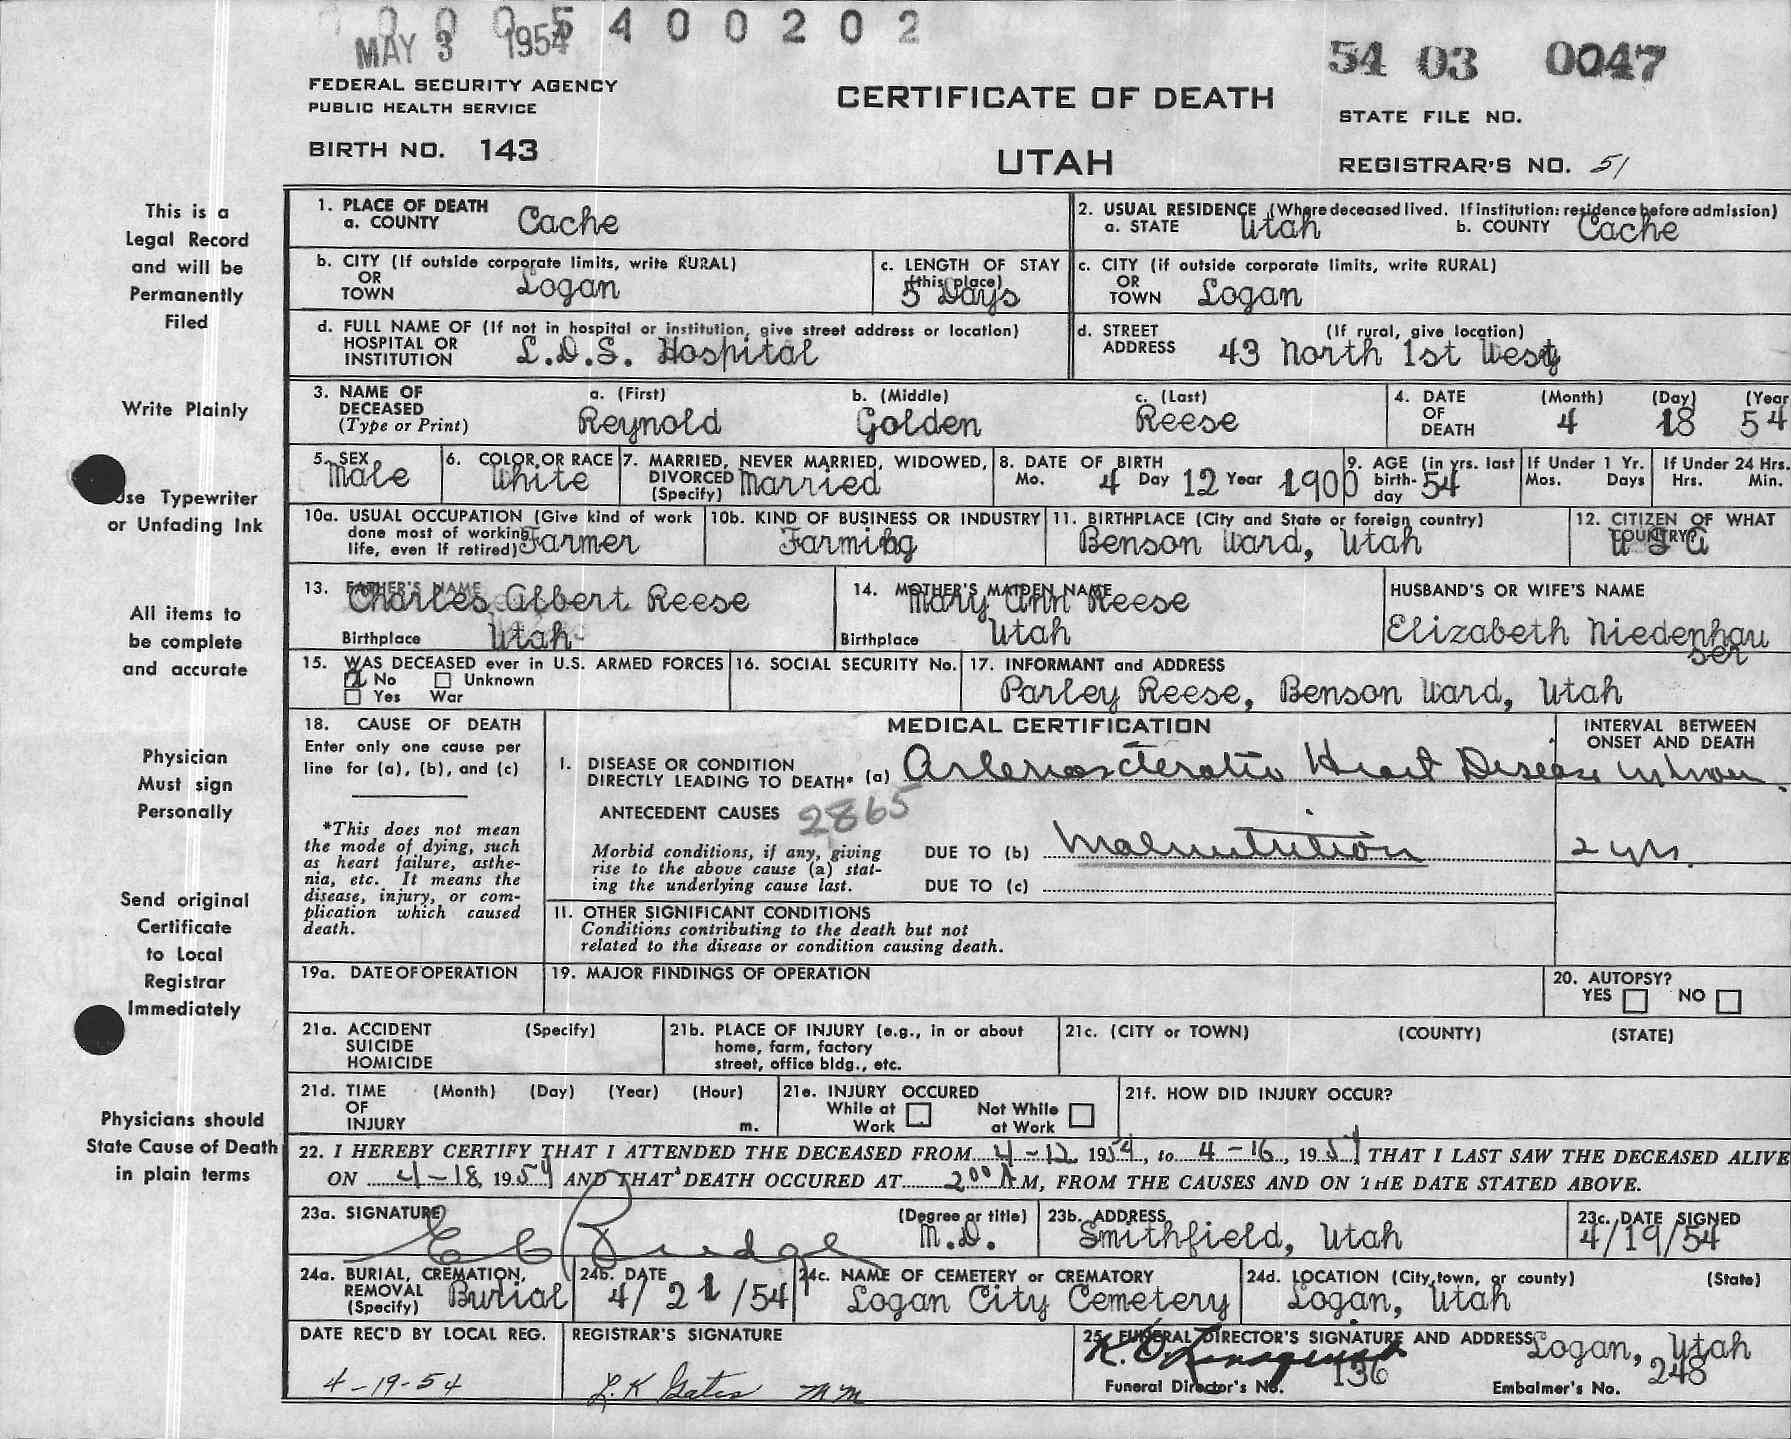 0 0 0 5 4 0 0 2 0 2
MAY 3 1954
54 03 0047
FEDERAL SECURITY AGENCY
PUBLIC HEALTH SERVICE
CERTIFICATE OF DEATH
STATE FILE NO.
BIRTH NO. 143
UTAH
REGISTRAR'S NO. 51
This is a
Legal Record
and will be
Permanently
Filed
1. PLACE OF DEATH
a. COUNTY Cache
2. USUAL RESIDENCE (Where deceased lived. If institution: residence before admission)
a. STATE Utah b. COUNTY Cache
b. CITY (If outside corporate limits, write RURAL)
OR
TOWN Logan
c. LENGTH OF STAY
(this place)
5 Days
c. CITY (if outside corporate limits, write RURAL)
OR
TOWN Logan
d. FULL NAME OF (If not in hospital or institution, give street address or location)
HOSPITAL OR
INSTITUTION L.D.S. Hospital
d. STREET (If rural, give location)
ADDRESS 43 North 1st West
Write Plainly
3. NAME OF
DECEASED
(Type or Print)
a. (First) b. (Middle) c. (Last)
Reynold Golden Reese
4. DATE
OF
DEATH
(Month) (Day) (Year
4 18 54
Use Typewriter
or Unfading Ink
5. SEX
Male
6. COLOR OR RACE
White
7. MARRIED, NEVER MARRIED, WIDOWED,
DIVORCED
(Specify) Married
8. DATE OF BIRTH
Mo. 4 Day 12 Year 1900
9. AGE (in yrs. last
birth-
day 54
If Under 1 Yr.
Mos. Days
If Under 24 Hrs.
Hrs. Min.
10a. USUAL OCCUPATION (Give kind of work
done most of working
life, even if retired) Farmer
10b. KIND OF BUSINESS OR INDUSTRY
Farming
11. BIRTHPLACE (City and State or foreign country)
Benson Ward, Utah
12. CITIZEN OF WHAT
COUNTRY?
U S A
All items to
be complete
and accurate
13. FATHER'S NAME
Charles Albert Reese
Birthplace Utah
14. MOTHER'S MAIDEN NAME
Mary Ann Reese
Birthplace Utah
HUSBAND'S OR WIFE'S NAME
Elizabeth Niedenhau
ser
15. WAS DECEASED ever in U.S. ARMED FORCES
No Unknown
Yes War
16. SOCIAL SECURITY No.
17. INFORMANT and ADDRESS
Parley Reese, Benson Ward, Utah
Physician
Must sign
Personally
18. CAUSE OF DEATH
Enter only one cause per
line for (a), (b), and (c)
*This does not mean
the mode of dying, such
as heart failure, asthe-
nia, etc. It means the
disease, injury, or com-
plication which caused
death.
MEDICAL CERTIFICATION
INTERVAL BETWEEN
ONSET AND DEATH
I. DISEASE OR CONDITION
DIRECTLY LEADING TO DEATH* (a) Arteriosclerotic Heart Disease unknown
ANTECEDENT CAUSES 2865
Morbid conditions, if any, giving
rise to the above cause (a) stat-
ing the underlying cause last.
DUE TO (b) Malnutrition 2 yrs.
DUE TO (c)
Send original
Certificate
to Local
Registrar
Immediately
II. OTHER SIGNIFICANT CONDITIONS
Conditions contributing to the death but not
related to the disease or condition causing death.
19a. DATE OF OPERATION
19. MAJOR FINDINGS OF OPERATION
20. AUTOPSY?
YES NO
21a. ACCIDENT (Specify)
SUICIDE
HOMICIDE
21b. PLACE OF INJURY (e.g., in or about
home, farm, factory
street, office bldg., etc.
21c. (CITY or TOWN) (COUNTY) (STATE)
21d. TIME (Month) (Day) (Year) (Hour)
OF
INJURY m.
21e. INJURY OCCURED
While at Not While
Work at Work
21f. HOW DID INJURY OCCUR?
Physicians should
State Cause of Death
in plain terms
22. I HEREBY CERTIFY THAT I ATTENDED THE DECEASED FROM 4-12 1954, to 4-16, 1954 THAT I LAST SAW THE DECEASED ALIVE
ON 4-18, 1954 AND THAT DEATH OCCURED AT 2 00 A M, FROM THE CAUSES AND ON THE DATE STATED ABOVE.
23a. SIGNATURE (Degree or title)
M.D.
23b. ADDRESS
Smithfield, Utah
23c. DATE SIGNED
4/19/54
24a. BURIAL, CREMATION,
REMOVAL
(Specify) Burial
24b. DATE
4/21/54
24c. NAME OF CEMETERY or CREMATORY
Logan City Cemetery
24d. LOCATION (City, town, or county) (State)
Logan, Utah
DATE REC'D BY LOCAL REG.
4-19-54
REGISTRAR'S SIGNATURE
25. FUNERAL DIRECTOR'S SIGNATURE AND ADDRESS Logan, Utah
Funeral Director's No. 136
Embalmer's No. 248